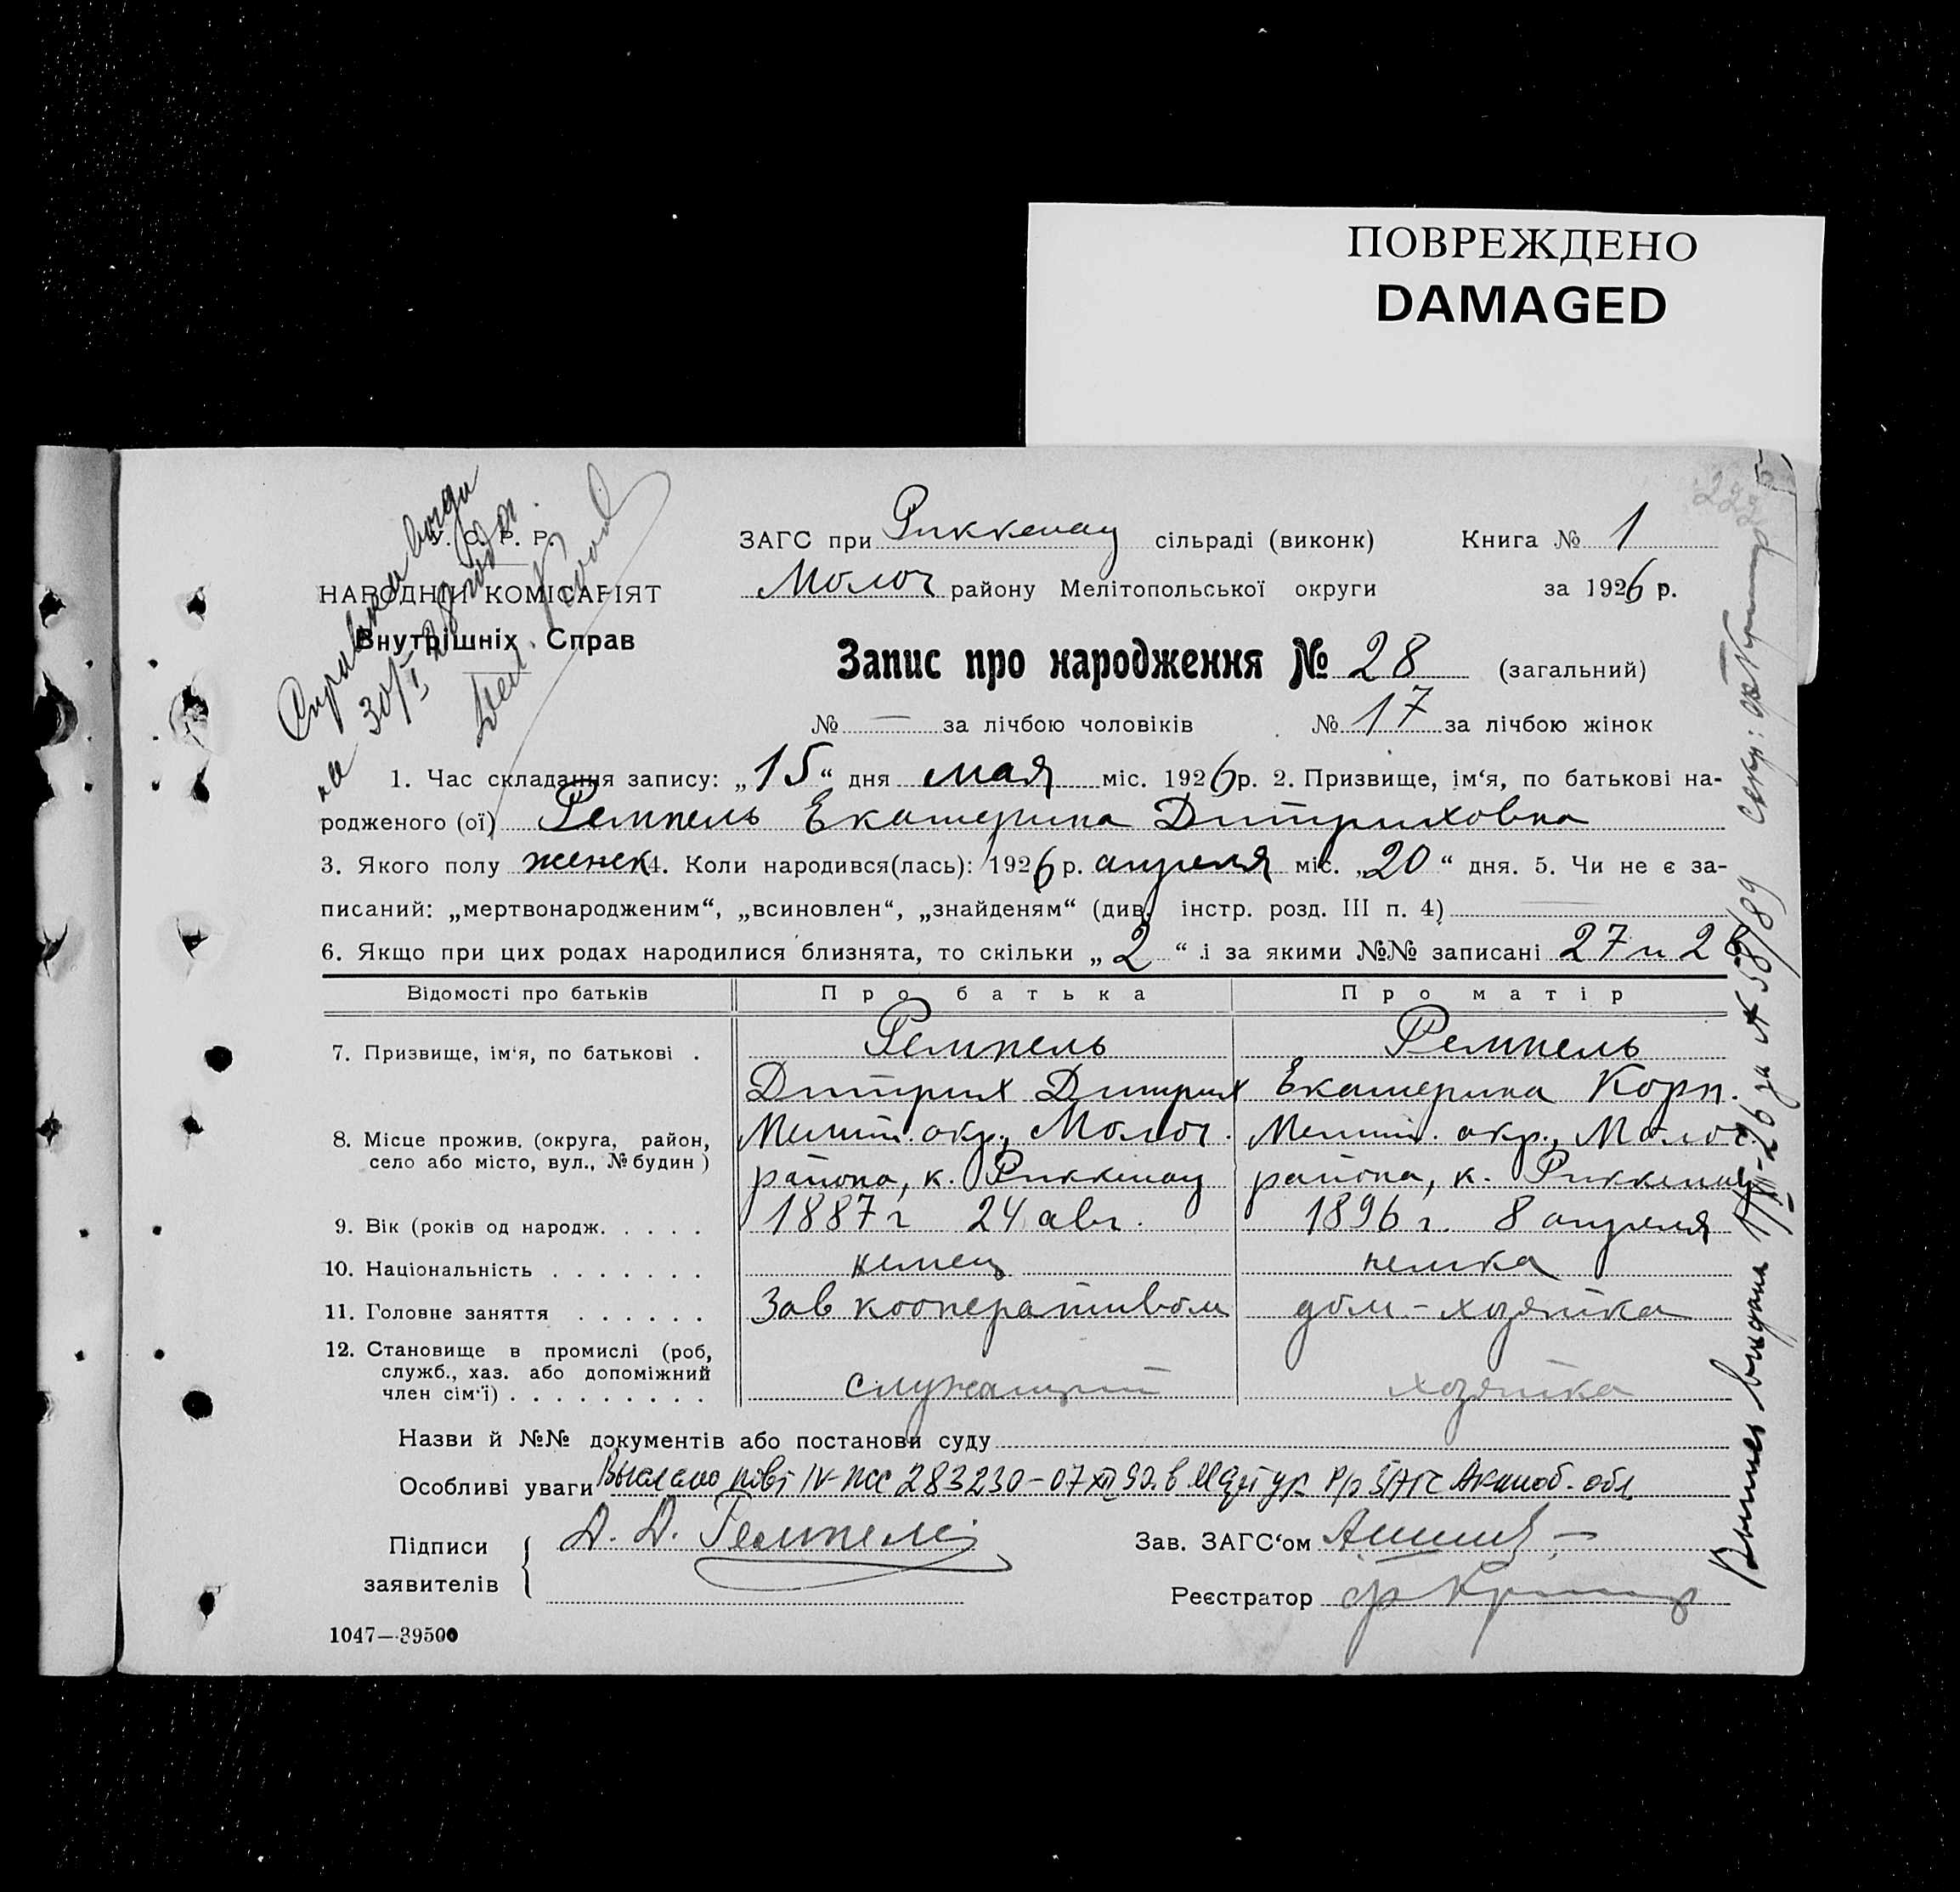 ПОВРЕЖДЕНО
DAMAGED
У. С. Р. Р.
НАРОДНІЙ КОМІСАРІЯТ
Внутрішніх Справ
Справка выдана
на 30/I 28 года.
ЗАГС при Риккенау сільраді (виконк) Книга № 1
Молоч району Мелітопольської округи за 1926 р.
Запис про народження № 28 (загальний)
№ — за лічбою чоловіків № 17 за лічбою жінок
1. Час складання запису: „15“ дня мая міс. 1926 р. 2. Призвище, ім‘я, по батькові на-
родженого (ої) Ремпель Екатерина Дитриховна
3. Якого полу женск 4. Коли народився(лась): 1926 р. апреля міс. „20“ дня. 5. Чи не є за-
писаний: „мертвонародженим“, „всиновлен“, „знайденям“ (див. інстр. розд. III п. 4) —
6. Якщо при цих родах народилися близнята, то скільки „2“ і за якими №№ записані 27 и 28
Відомості про батьків Про батька Про матір
7. Призвище, ім‘я, по батькові . Ремпель Ремпель
Дитрих Дитрих Екатерина Корн.
8. Місце прожив. (округа, район, Мелит. окр., Молоч. Мелит. окр., Молоч.
село або місто, вул., № будин) района, к. Риккенау района, к. Риккенау
9. Вік (років од народж. . . . . 1887 г 24 авг. 1896 г. 8 апреля
10. Національність . . . . . . . немец немка
11. Головне заняття . . . . . . Зав кооперативом дом.-хозяйка
12. Становище в промислі (роб,
служб., хаз. або допоміжний
член сім‘ї) . . . . . . . . . служащий хозяйка
Назви й №№ документів або постанови суду
Особливі уваги Выслано повт IV-ЖС 283230-07 XII 90. в р/р ЗАГС Актюб. обл
Підписи
заявителів
Д. Д. Ремпель
Зав. ЗАГС‘ом
Реєстратор
1047—39500
Выпись выдана 1/XII-26 за № 58/89 секр: